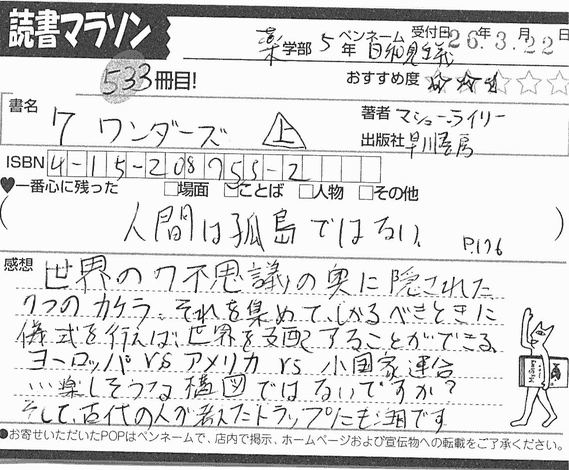 読書マラソン
薬学部 5年 ペンネーム 受付日 26年3月22日
533冊目! おすすめ度
書名 7ワンダーズ 上
著者 マシュー・ライリー
出版社 早川書房
ISBN 4-15-208755-2
♥一番心に残った □場面 ☑ことば □人物 □その他
(人間は孤島ではない P.176)
感想 世界の7不思議の奥に隠された
7つのカケラ。それを集めて、しかるべきときに
儀式を行えば、世界を支配することができる
ヨーロッパ vs アメリカ vs 小国家連合
…楽しそうな構図ではないですか?
そして、古代の人が考えたトラップにも注目です
●お寄せいただいたPOPはペンネームで、店内で掲示、ホームページおよび宣伝物への転載をご了承ください。